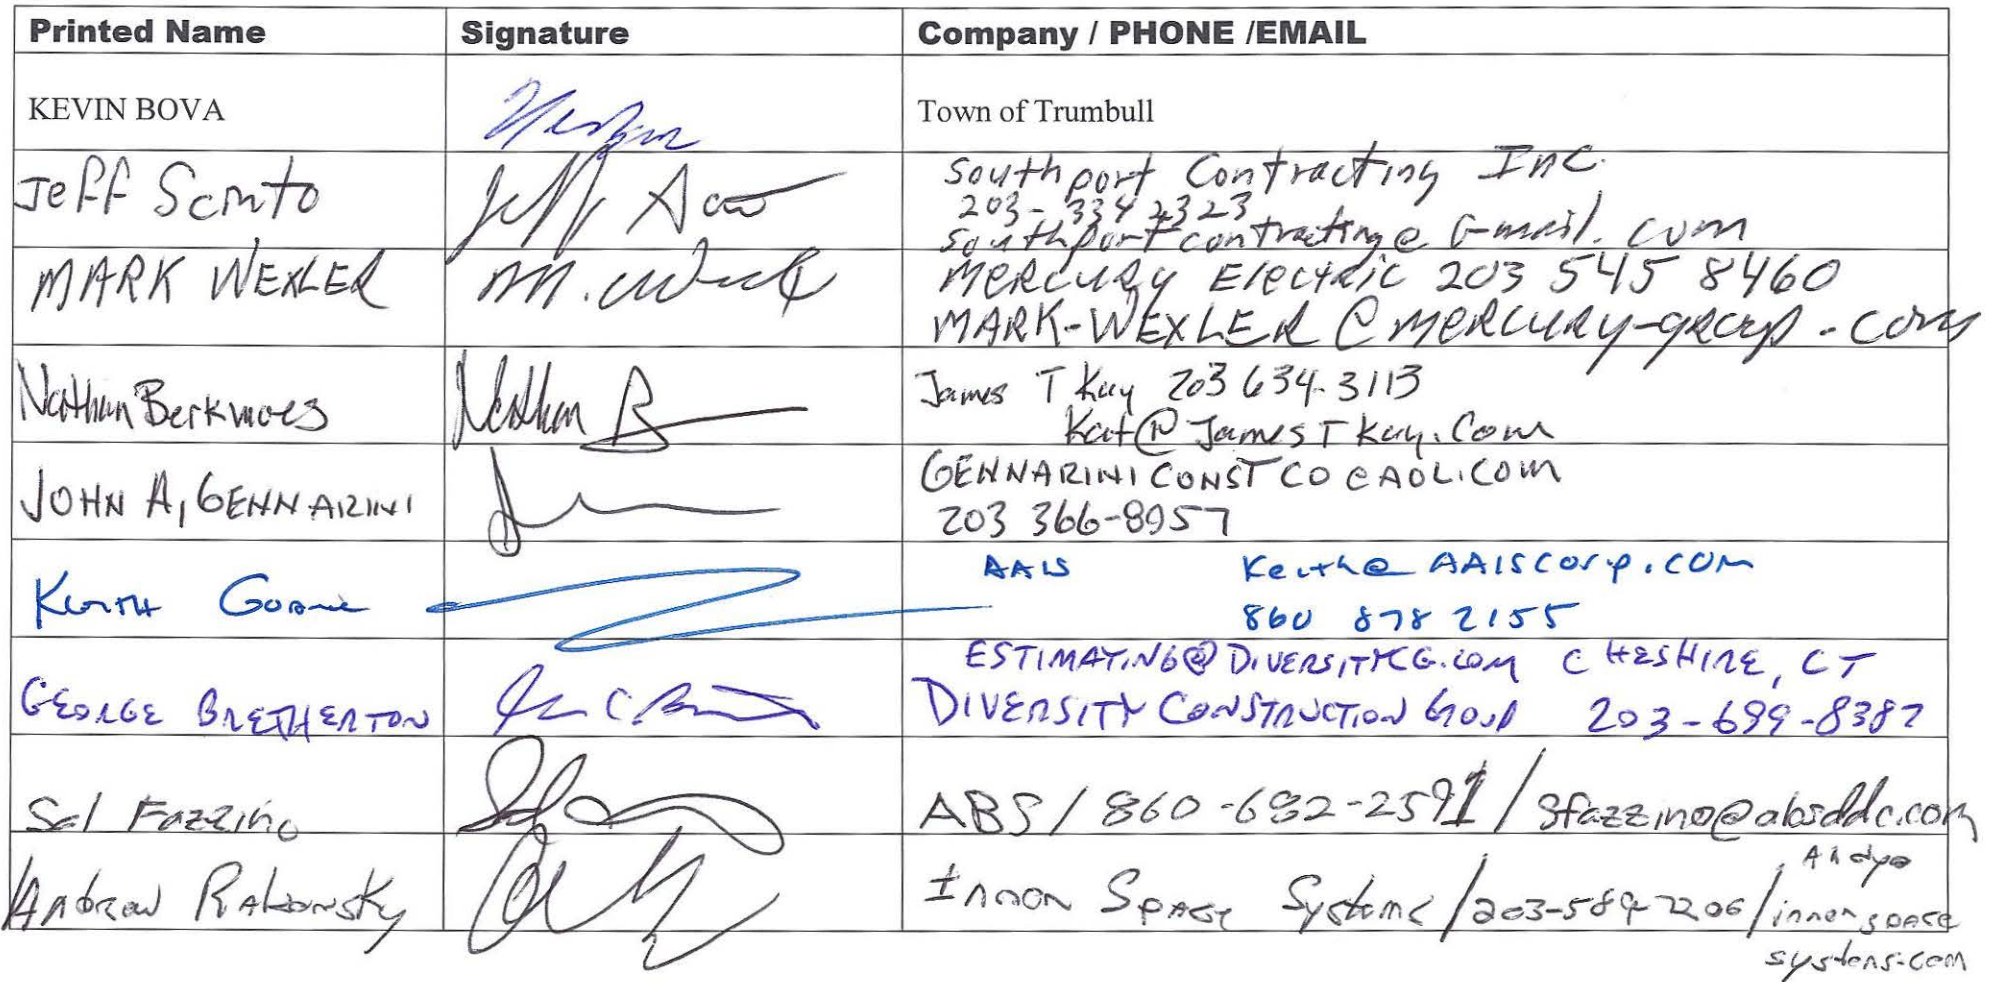 Printed Name Signature Company / PHONE /EMAIL
KEVIN BOVA Town of Trumbull
Jeff Scinto Southport Contracting Inc.
203-334 2323
southportcontracting@G-mail.com
MARK WEXLER M. Mercury Electric 203 545 8460
MARK-WEXLER@MERCURY-group.com
Nathan Berkmoes Nathan B James T Kay 203 634-3113
Kat@JamesTKay.Com
JOHN A, GENNARINI GENNARINICONSTCO@AOL.COM
203 366-8957
Keith AAIS Keith@AAISCorp.com
860 878 2155
ESTIMATING@DIVERSITYCG.COM CHESHIRE, CT
GEORGE BRETHERTON DIVERSITY CONSTRUCTION GROUP 203-699-8387
Sal Fazzino ABS / 860-692-2591 / Sfazzino@absddc.com
Andy@
Andrew Rakowsky Inner Space Systems / 203-589-7206 / innerspace
systems.com